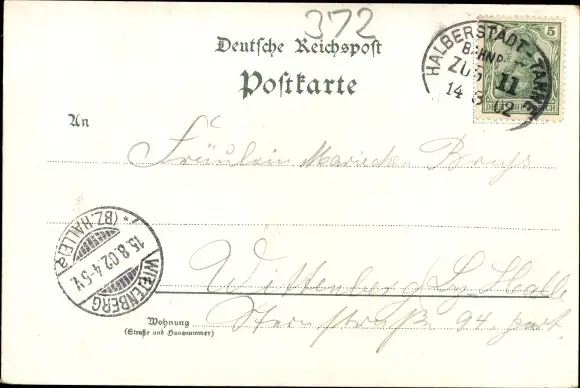 372
Deutsche Reichspost
Postkarte
HALBERSTADT - TANNE
BAHNP
ZUG
11
14 8 02
5
DEUTSCHES REICH
An
Fräulein Mariechen
Wittenberg Bz Halle
Sternstraße 94. part.
WITTENBERG
(BZ. HALLE) a
15.8.02 4-5 V.
Wohnung
(Straße und Hausnummer)